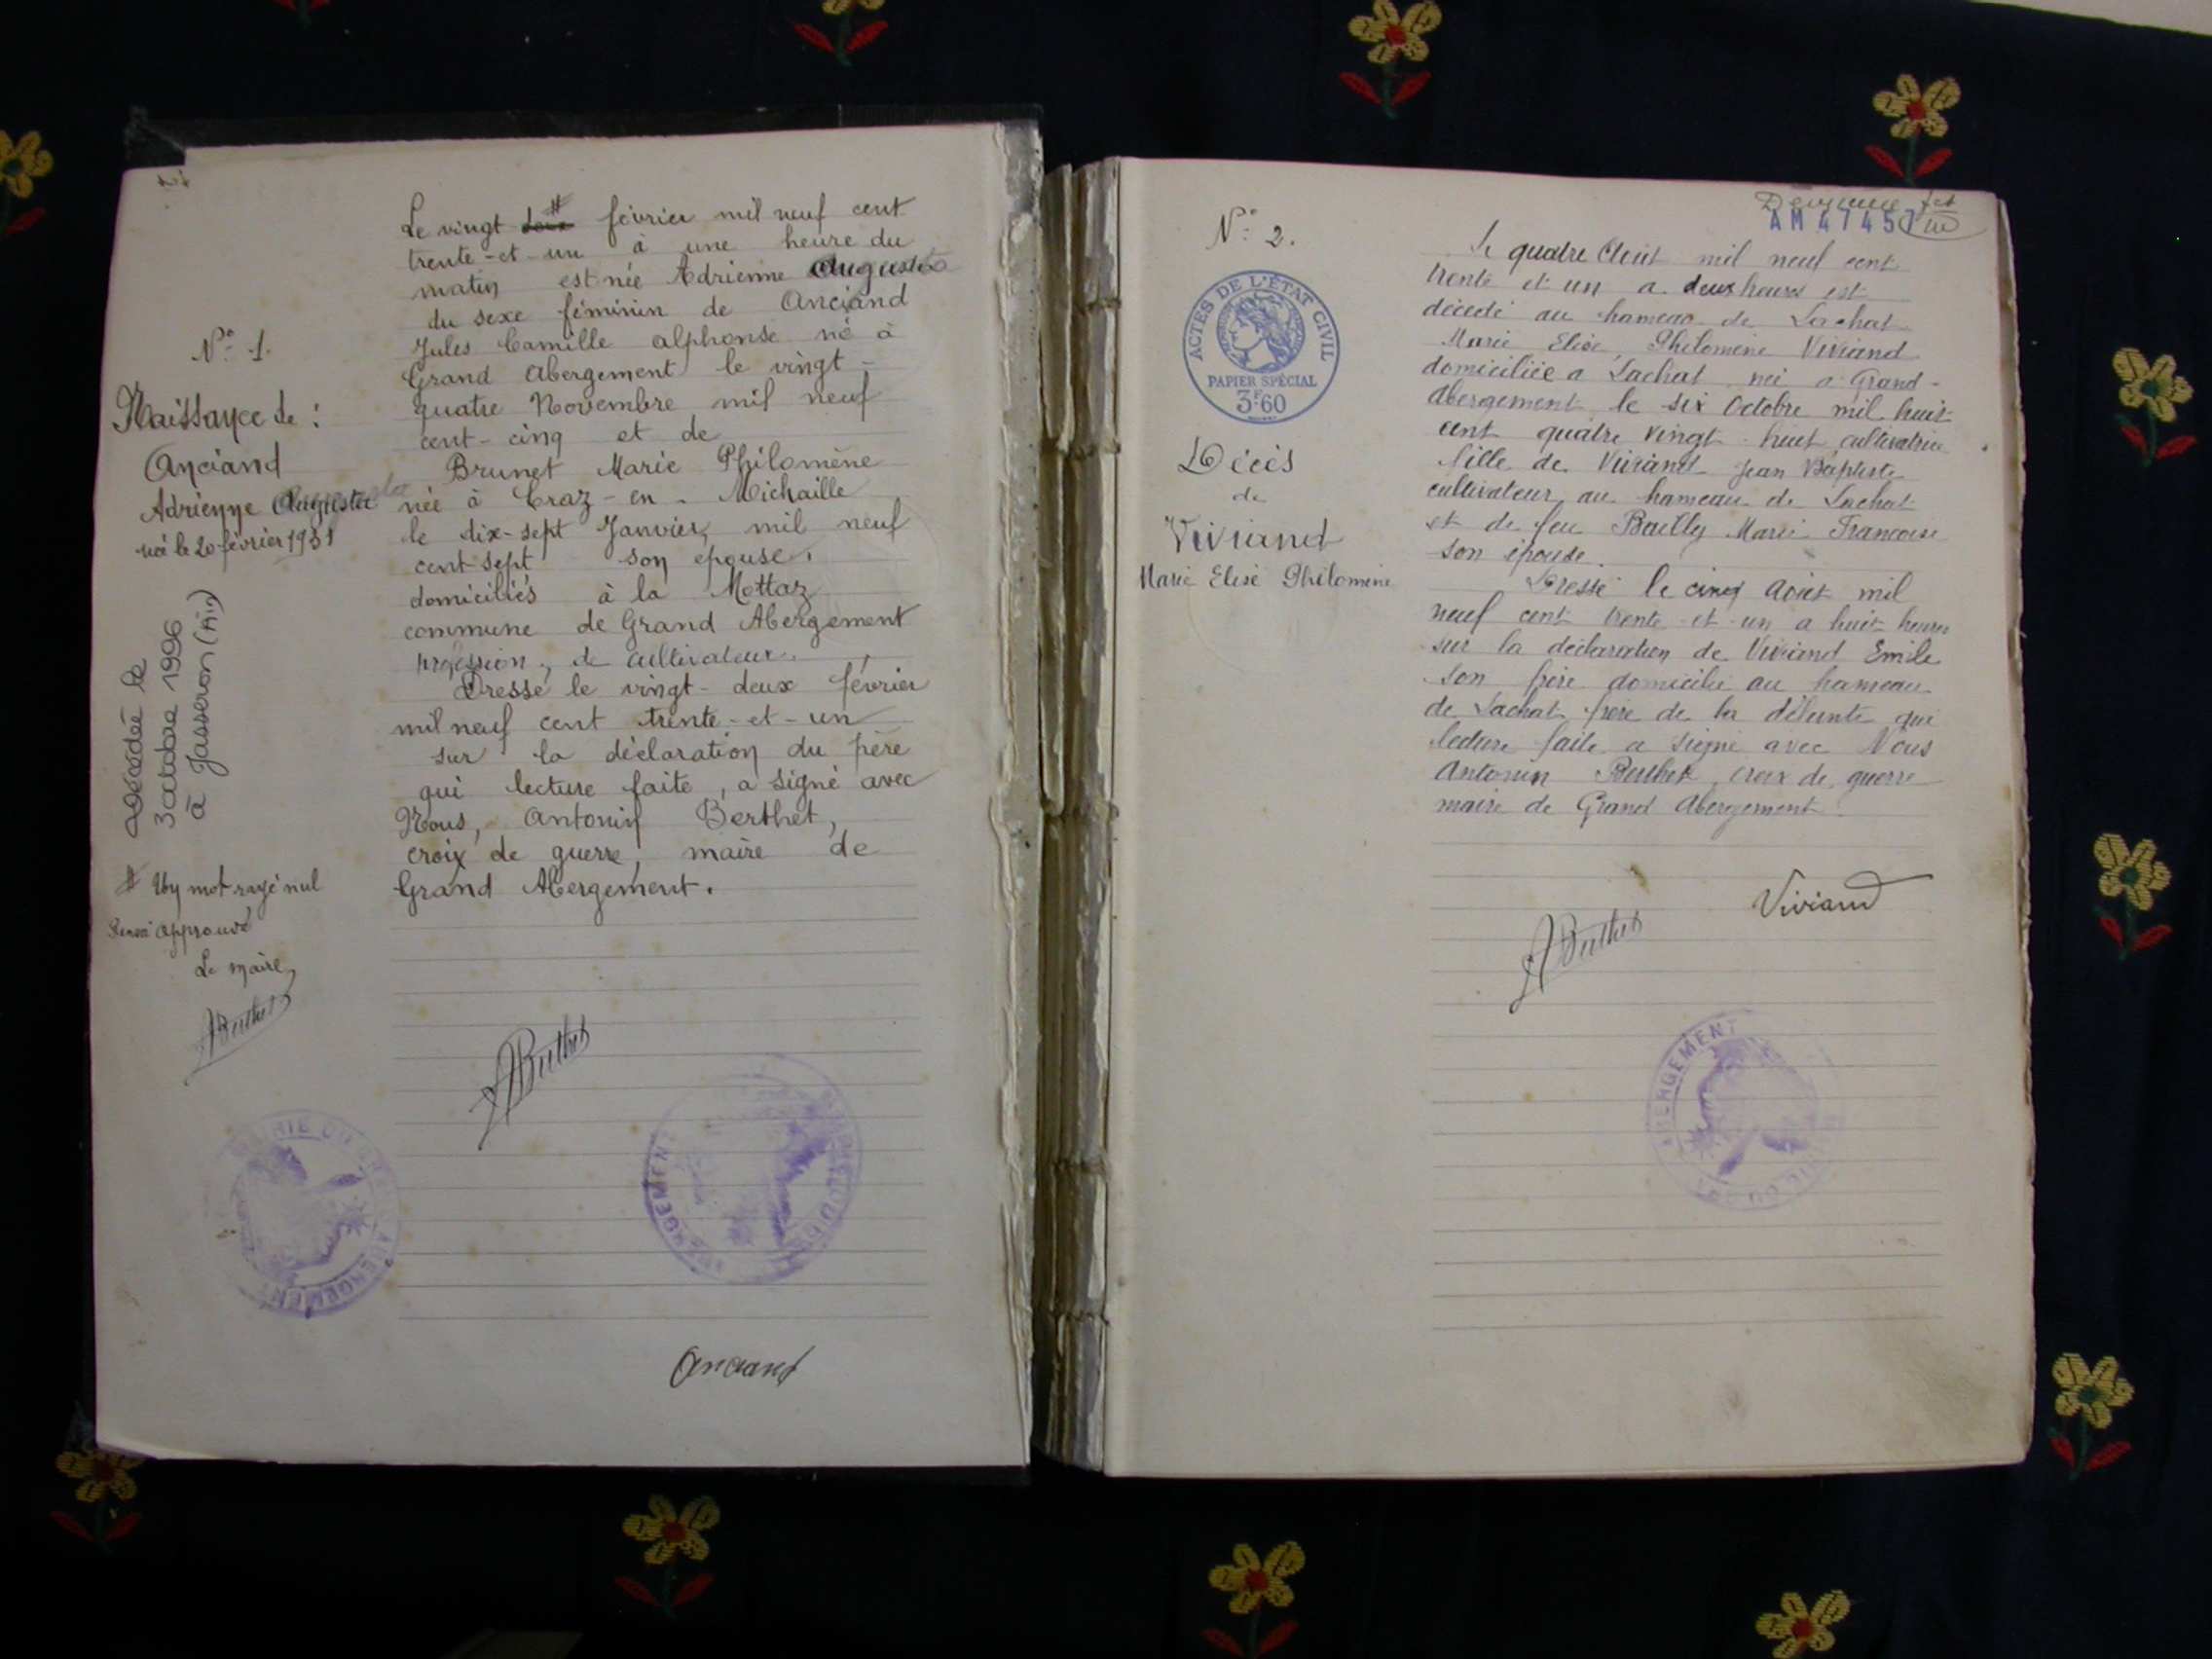 N° 1.
Naissance de :
Anciand
Adrienne Augusta
née le 20 février 1931
décédée le
3 octobre 1996
à Jasseron (Ain)
# Un mot rayé nul
Renvoi approuvé
Le maire,
ABerthet
Le vingt deux # février mil neuf cent
trente-et-un à une heure du
matin est née Adrienne Augusta
du sexe féminin de Anciand
Jules Camille Alphonse né à
Grand Abergement le vingt-
quatre Novembre mil neuf
cent-cinq et de
Brunet Marie Philomène
née à Craz-en-Michaille
le dix-sept Janvier mil neuf
cent-sept son épouse.
domiciliés à la Mottaz
commune de Grand Abergement
profession, de cultivateur.
Dressé le vingt-deux février
mil neuf cent trente-et-un
sur la déclaration du père
qui lecture faite, a signé avec
Nous, Antonin Berthet,
croix de guerre, maire de
Grand Abergement.
ABerthet
ABERGEMENT
Anciand
AM 47457
N° 2.
ACTES DE L'ÉTAT CIVIL
PAPIER SPÉCIAL
3F60
Décès
de
Viviand
Marie Elise Philomène
Le quatre Août mil neuf cent
trente et un a deux heures est
décédé au hameau de Lachat
Marie Elise Philomène Viviand
domiciliée a Lachat née a Grand-
Abergement le six Octobre mil huit
cent quatre vingt huit cultivatrice
fille de Viviand Jean Baptiste
cultivateur au hameau de Lachat
et de feu Bailly Marie Françoise
son épouse.
Dressé le cinq Août mil
neuf cent trente et un a huit heures
sur la déclaration de Viviand Emile
son frère domicilié au hameau
de Lachat frère de la défunte qui
lecture faite a signé avec Nous
Antonin Berthet, croix de guerre
maire de Grand Abergement.
Viviand
ABerthet
ABERGEMENT